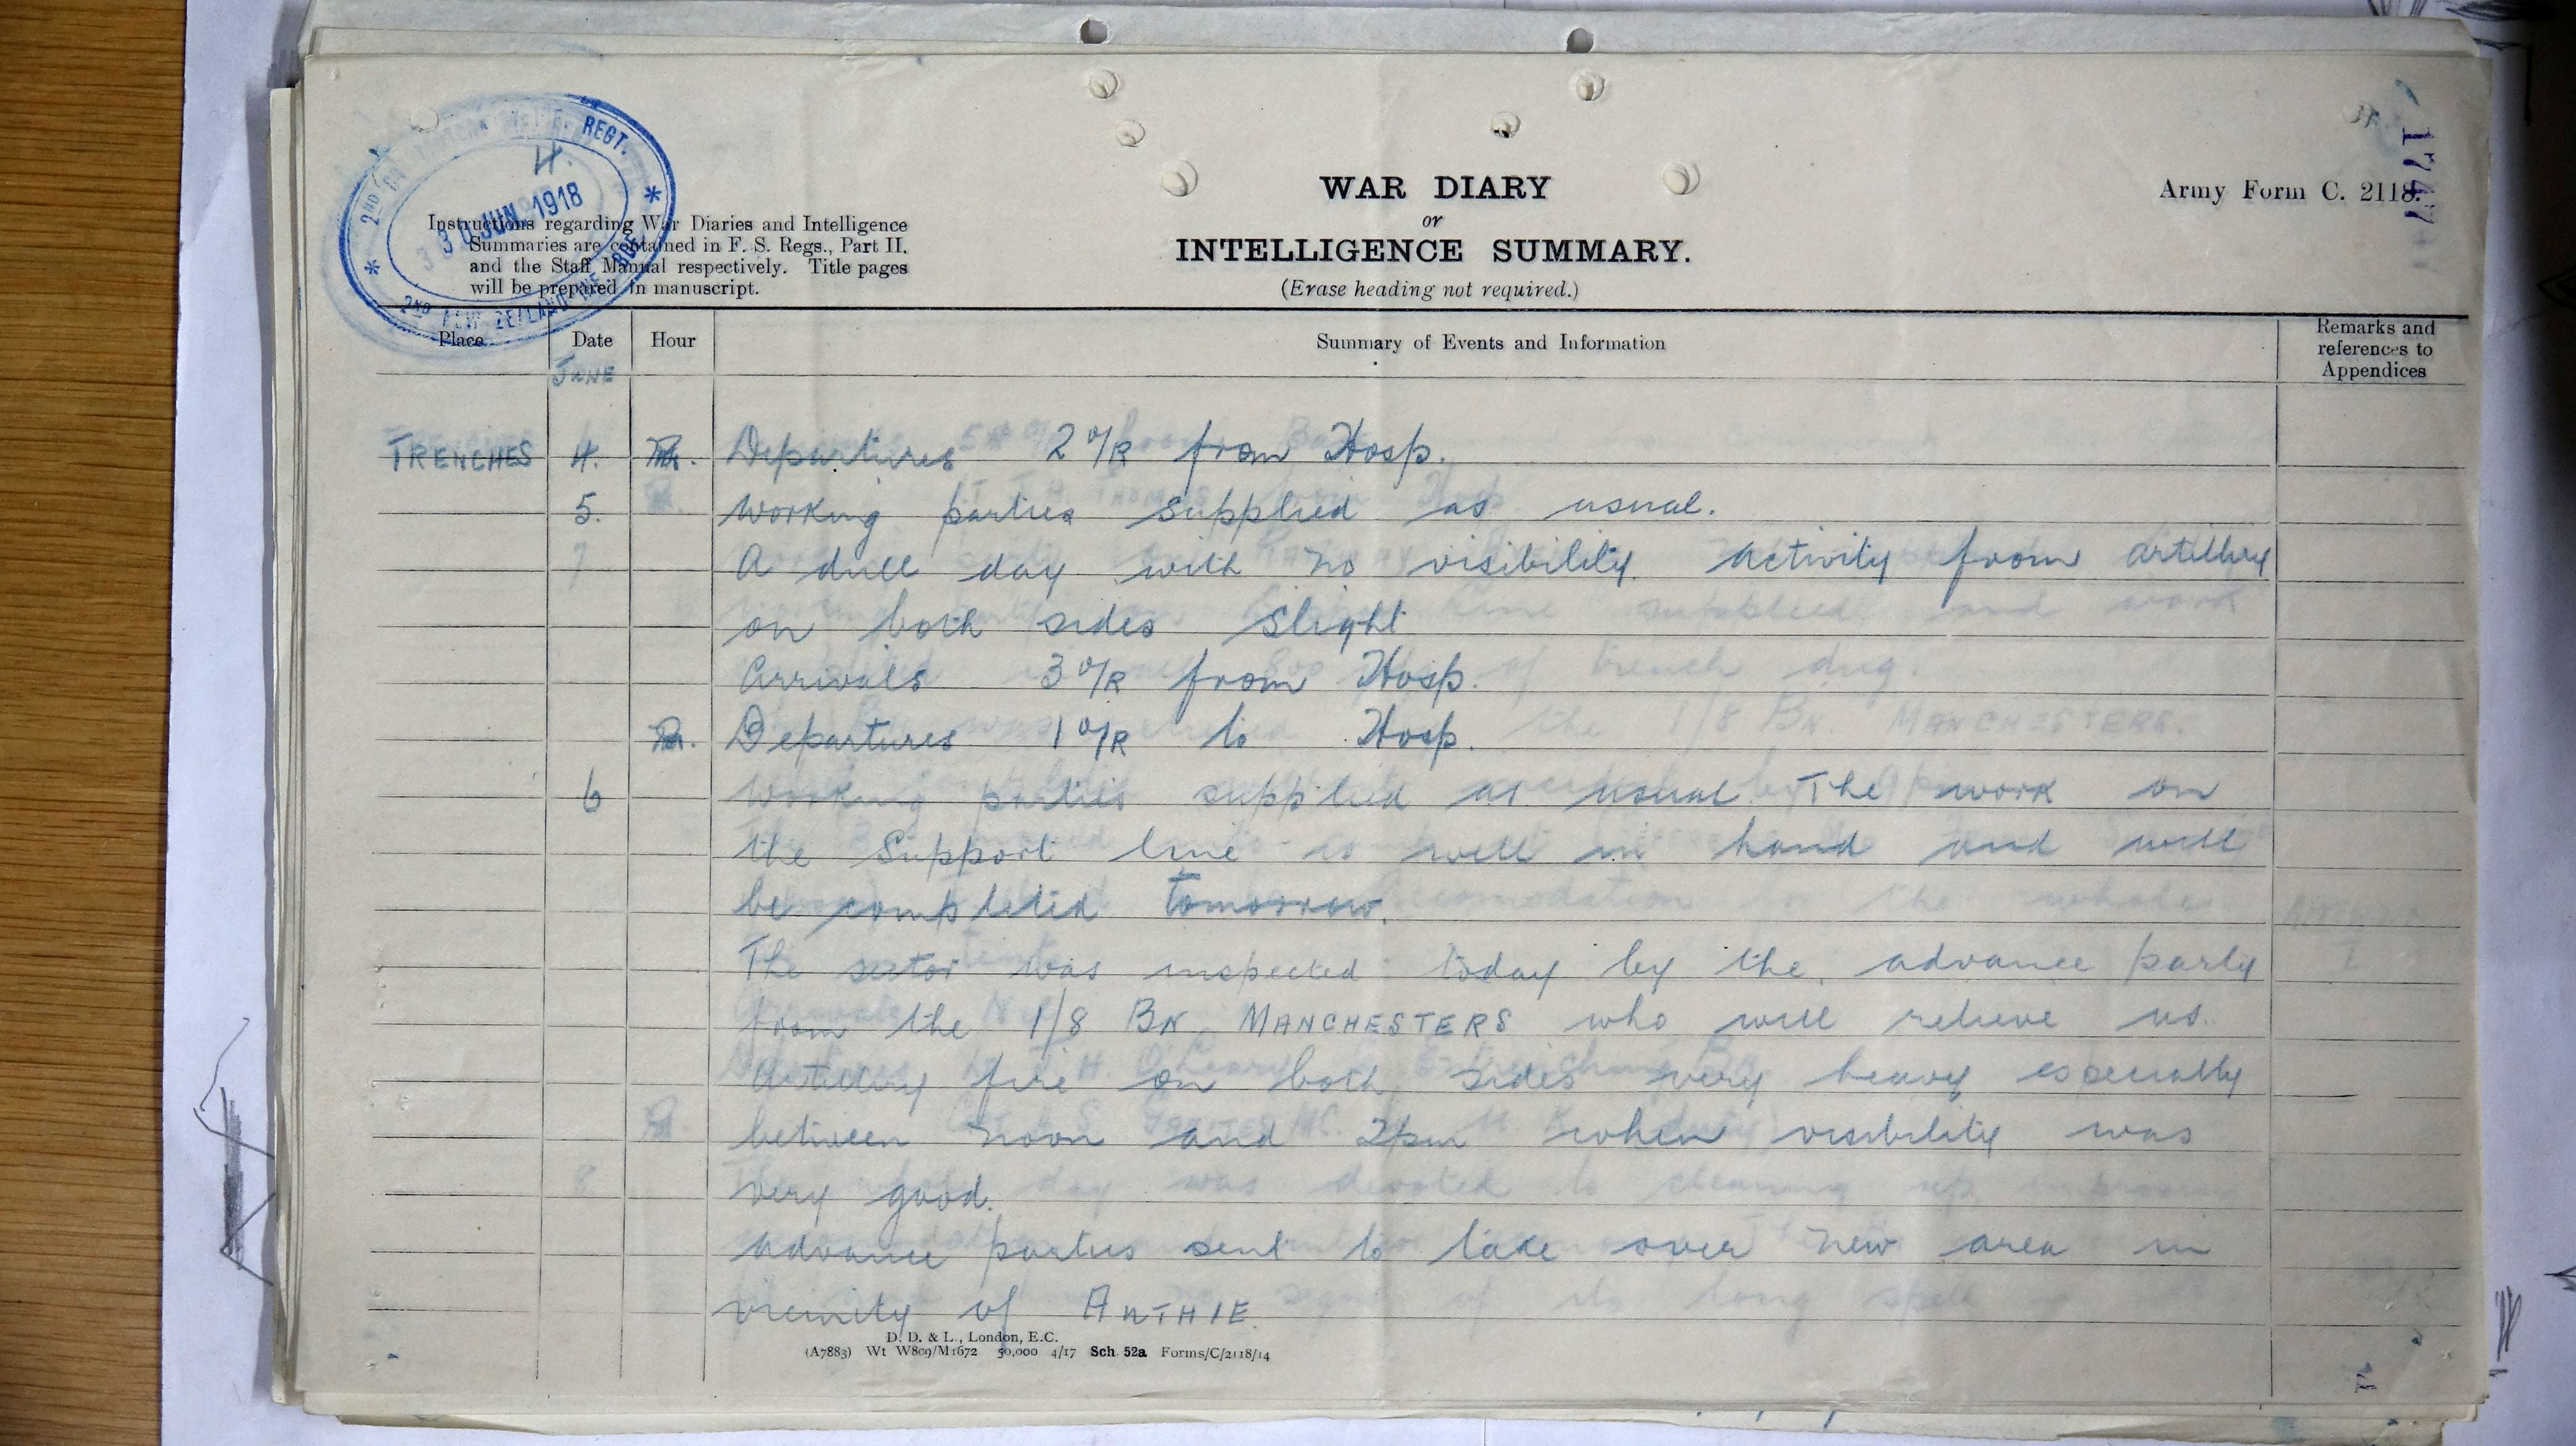 2ND REGT.
4.
30 JUN 1918
2ND NEW ZEALAND INF. BDE.
Instructions regarding War Diaries and Intelligence
Summaries are contained in F. S. Regs., Part II.
and the Staff Manual respectively. Title pages
will be prepared in manuscript.
WAR DIARY
or
INTELLIGENCE SUMMARY.
(Erase heading not required.)
Army Form C. 2118.
1747
Place Date Hour Summary of Events and Information Remarks and references to Appendices
JUNE
TRENCHES 4. Departures 2 O/R from Hosp.
5. Working parties supplied as usual.
A dull day with no visibility. Activity from artillery
on both sides slight
Arrivals 3 O/R from Hosp.
Departures 1 O/R to Hosp.
6 Working parties supplied as usual The work on
the Support line is well in hand and will
be completed tomorrow.
The sector was inspected today by the advance party
from the 1/8 BN MANCHESTERS who will relieve us.
Artillery fire on both sides very heavy especially
between noon and 2pm when visibility was
very good.
Advance parties sent to take over new area in
vicinity of AUTHIE.
D. D. & L., London, E.C.
(A7883) Wt W809/M1672 50,000 4/17 Sch. 52a Forms/C/2118/14